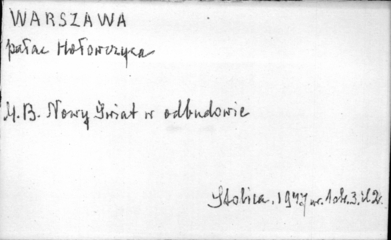 WARSZAWA
pałac Hołowczyca
M.B. Nowy Świat w odbudowie
Stolica. 1947 nr. 1 str. 3. il 2.